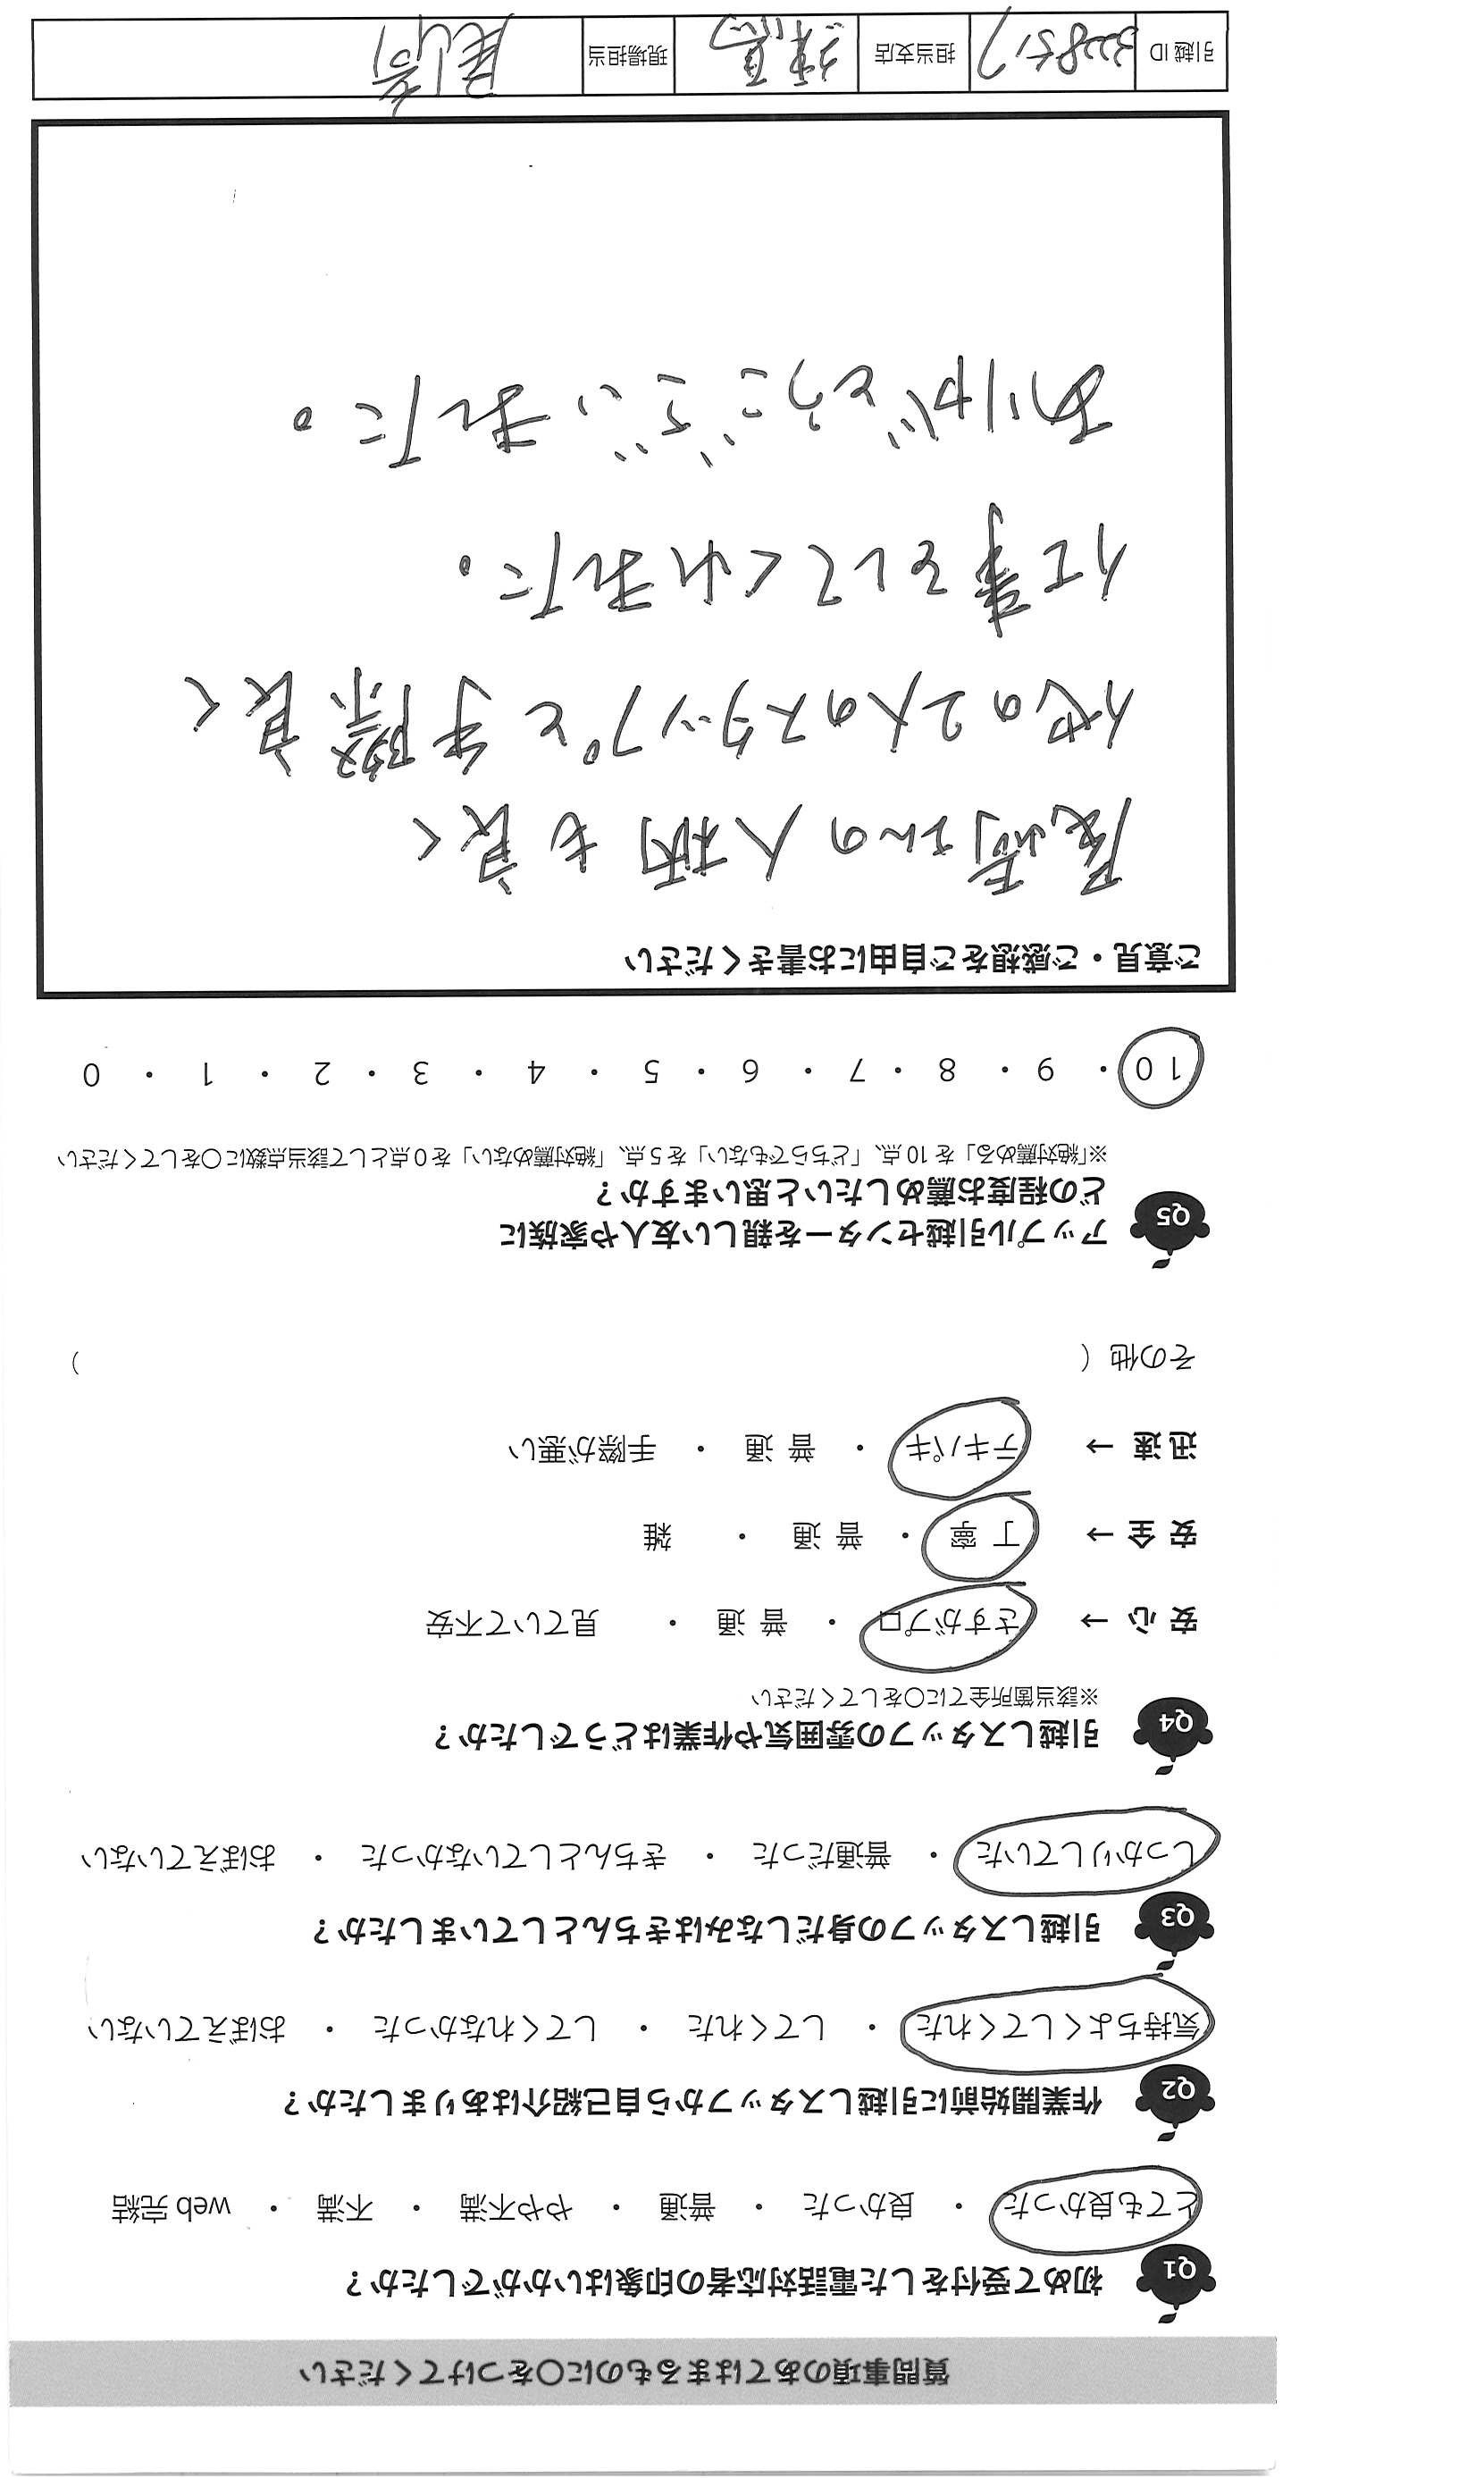 質問事項のあてはまるものに○をつけてください
Q1 初めて受付をした電話対応者の印象はいかがでしたか？
とても良かった ・ 良かった ・ 普通 ・ やや不満 ・ 不満 ・ web 完結
Q2 作業開始前に引越しスタッフから自己紹介はありましたか？
気持ちよくしてくれた ・ してくれた ・ してくれなかった ・ おぼえていない
Q3 引越しスタッフの身だしなみはきちんとしていましたか？
しっかりしていた ・ 普通だった ・ きちんとしていなかった ・ おぼえていない
Q4 引越しスタッフの雰囲気や作業はどうでしたか？
※該当箇所全てに○をしてください
安 心 → さすがプロ ・ 普 通 ・ 見ていて不安
安 全 → 丁 寧 ・ 普 通 ・ 雑
迅 速 → テキパキ ・ 普 通 ・ 手際が悪い
その他（ ）
Q5 アップル引越センターを親しい友人や家族に
どの程度お薦めしたいと思いますか？
※「絶対薦める」を 10 点、「どちらでもない」を 5 点、「絶対薦めない」を 0 点として該当点数に○をしてください
10 ・ 9 ・ 8 ・ 7 ・ 6 ・ 5 ・ 4 ・ 3 ・ 2 ・ 1 ・ 0
ご意見・ご感想をご自由にお書きください
尾崎さんの人柄も良く
他の2人のスタッフと手際良く
仕事をしてくれました。
ありがとうございました。
引越 ID 3228517 担当支店 練馬 現場担当 尾崎